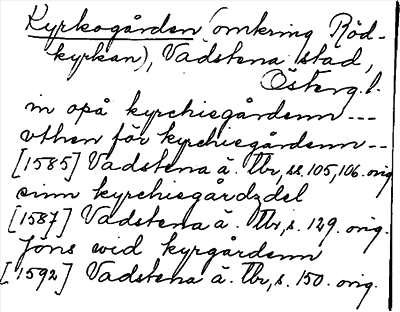 Kyrkogården (omkring Röd-
kyrkan), Vadstena stad,
Österg.l.
in opå kyrchiegårdenn ---
vthen för kyrchiegårdenn --
[1585] Vadstena ä. Tbr, ss. 105, 106. orig
sinn kyrchiegårdzdel
[1587] Vadstena ä. Tbr, s. 129. orig.
Jöns wid kyrgårdenn
[1592] Vadstena ä. Tbr, s. 150. orig.